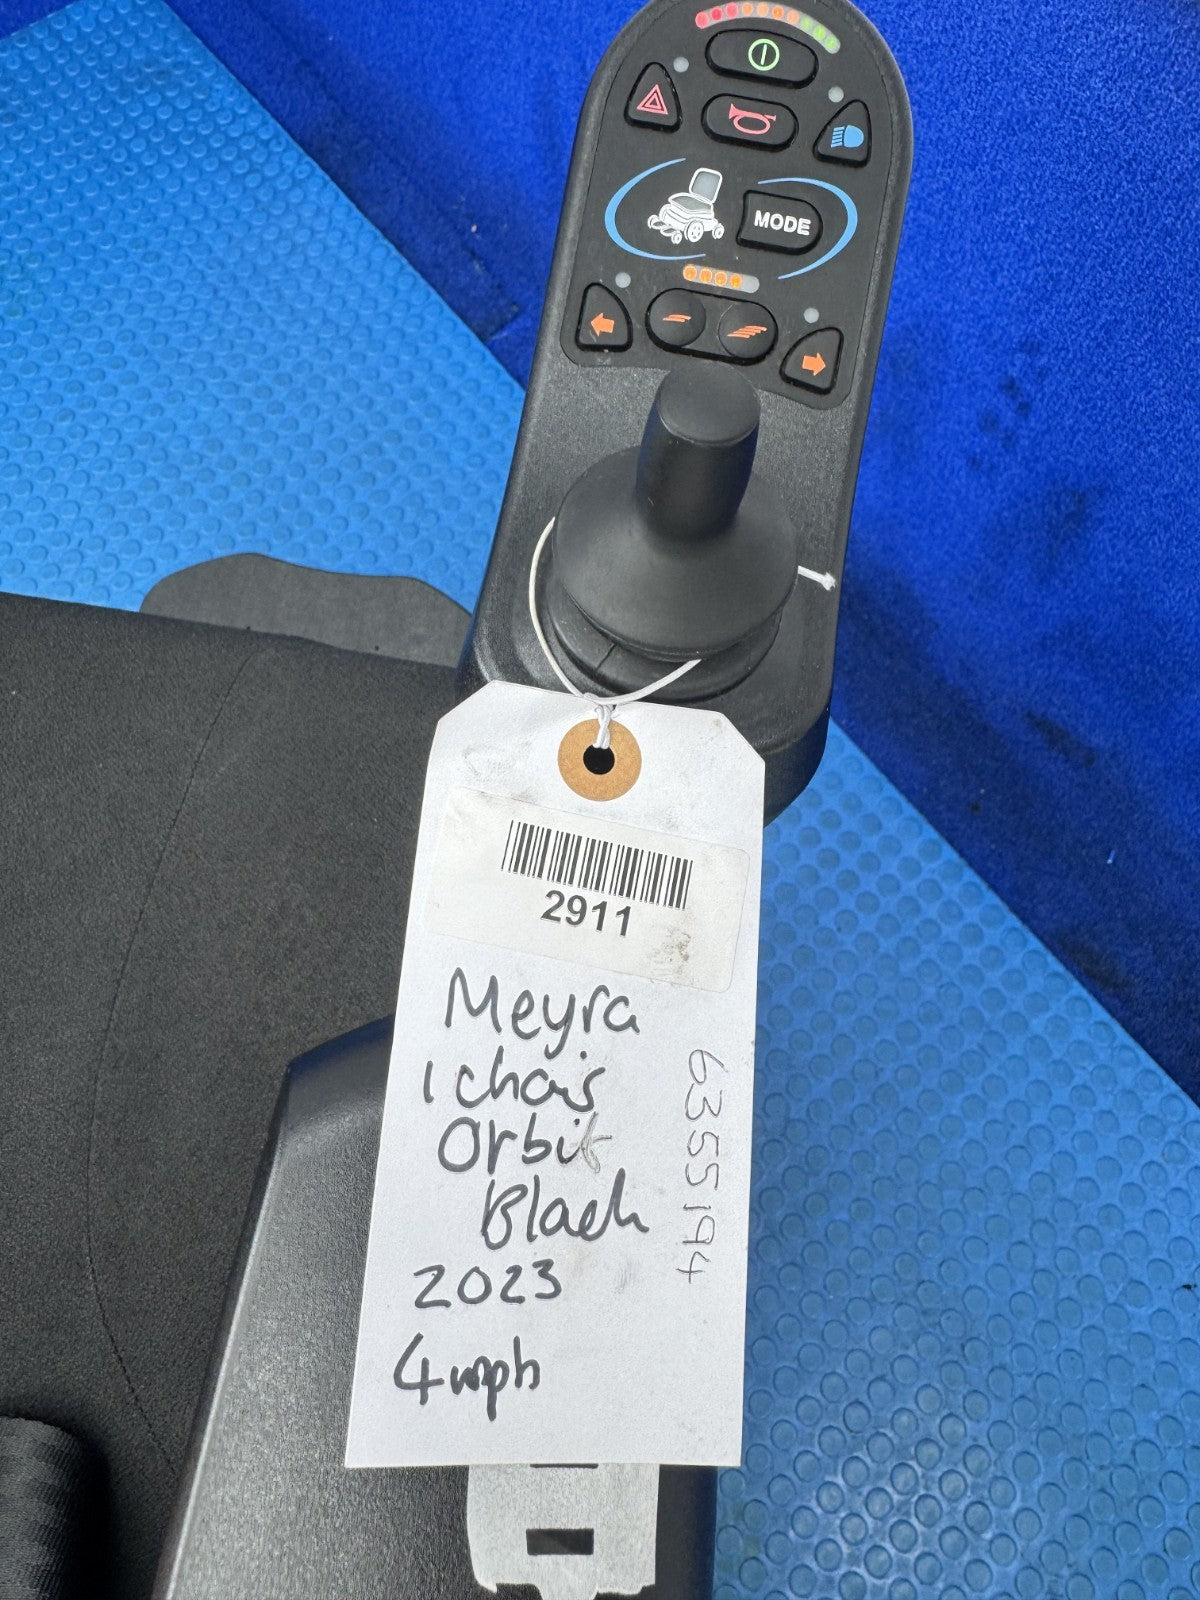 MODE
2911
Meyra
ichair
Orbit
Black
2023
4mph
6355194